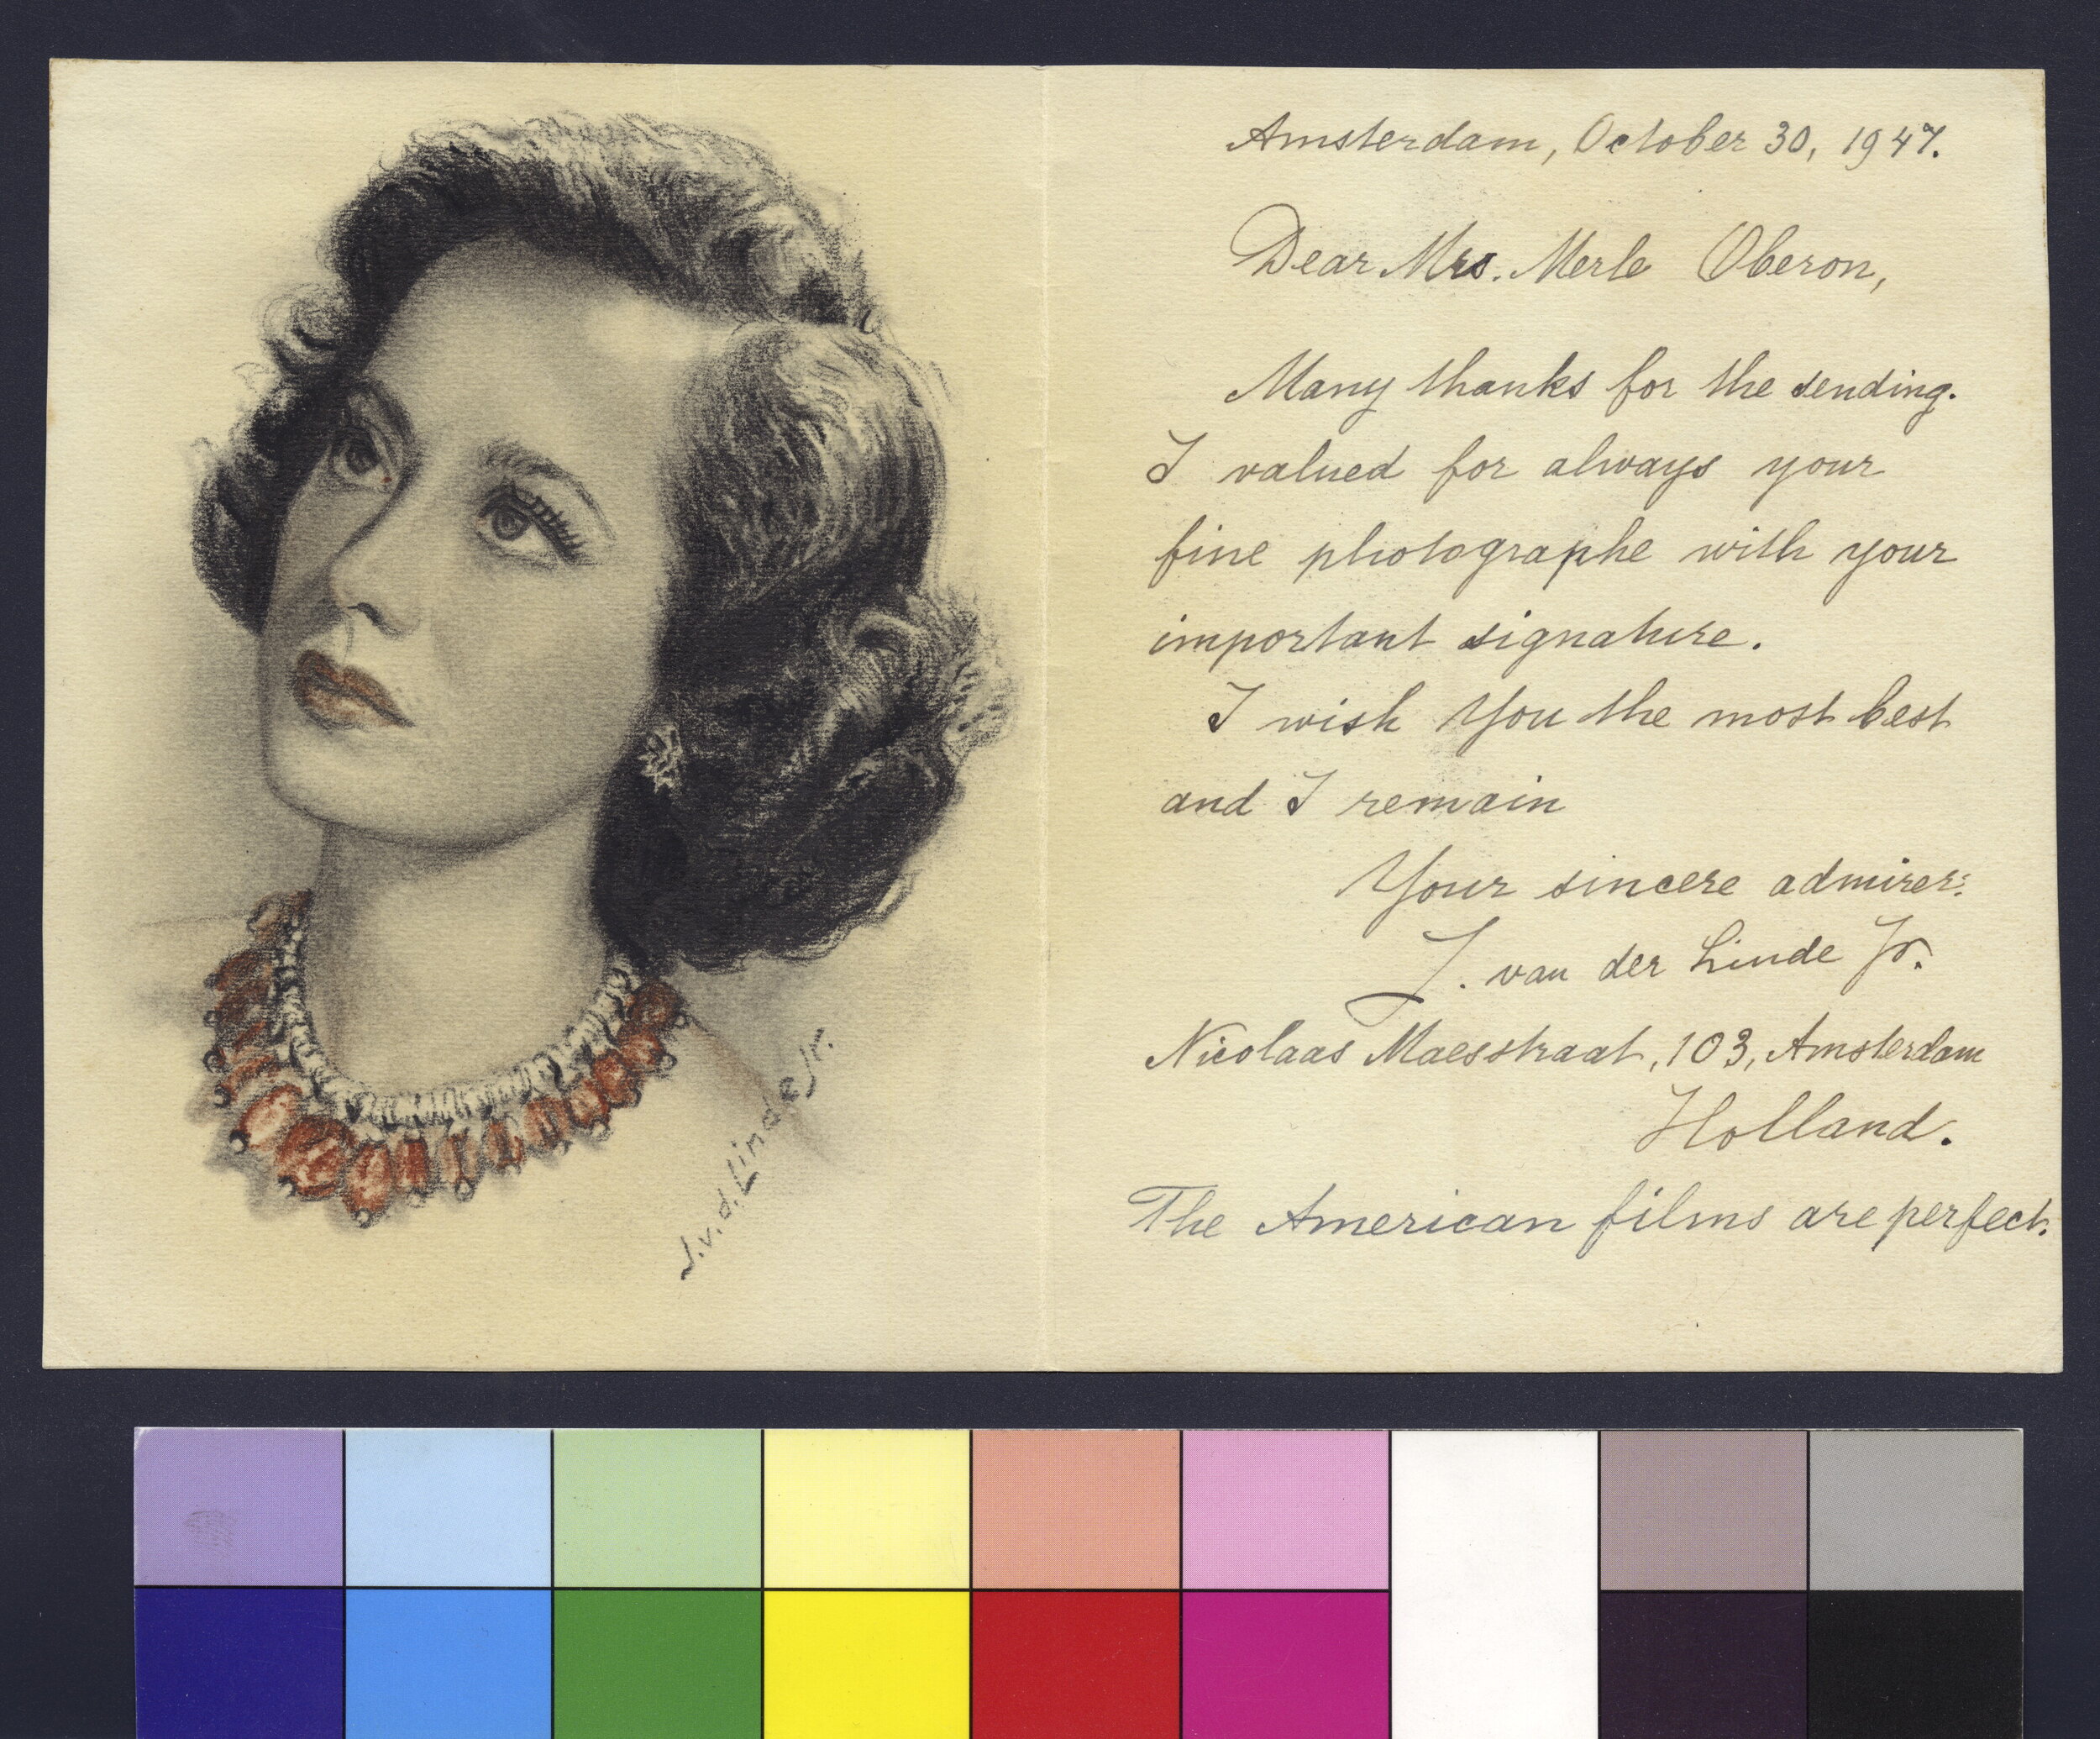 J.v.d.Linde Jr.
Amsterdam, October 30, 1947.
Dear Mrs. Merle Oberon,
Many thanks for the sending.
I valued for always your
fine photographe with your
important signature.
I wish You the most best
and I remain
Your sincere admirer:
J. van der Linde Jr.
Nicolaas Maesstraat, 103, Amsterdam
Holland.
The American films are perfect.